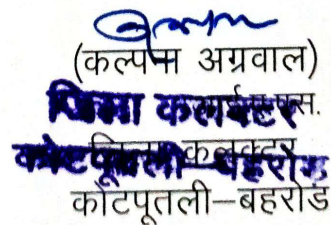 (कल्पना अग्रवाल)
जिला कलक्टर
कोटपूतली-बहरोड
जिला कलक्टर
कोटपूतली–बहरोड